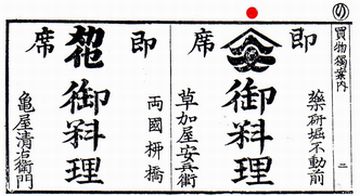 買物獨案内
二
即
藥研堀不動前
御料理
席
草加屋安兵衛
即
両國桺橋
御料理
席
亀屋清右衛門